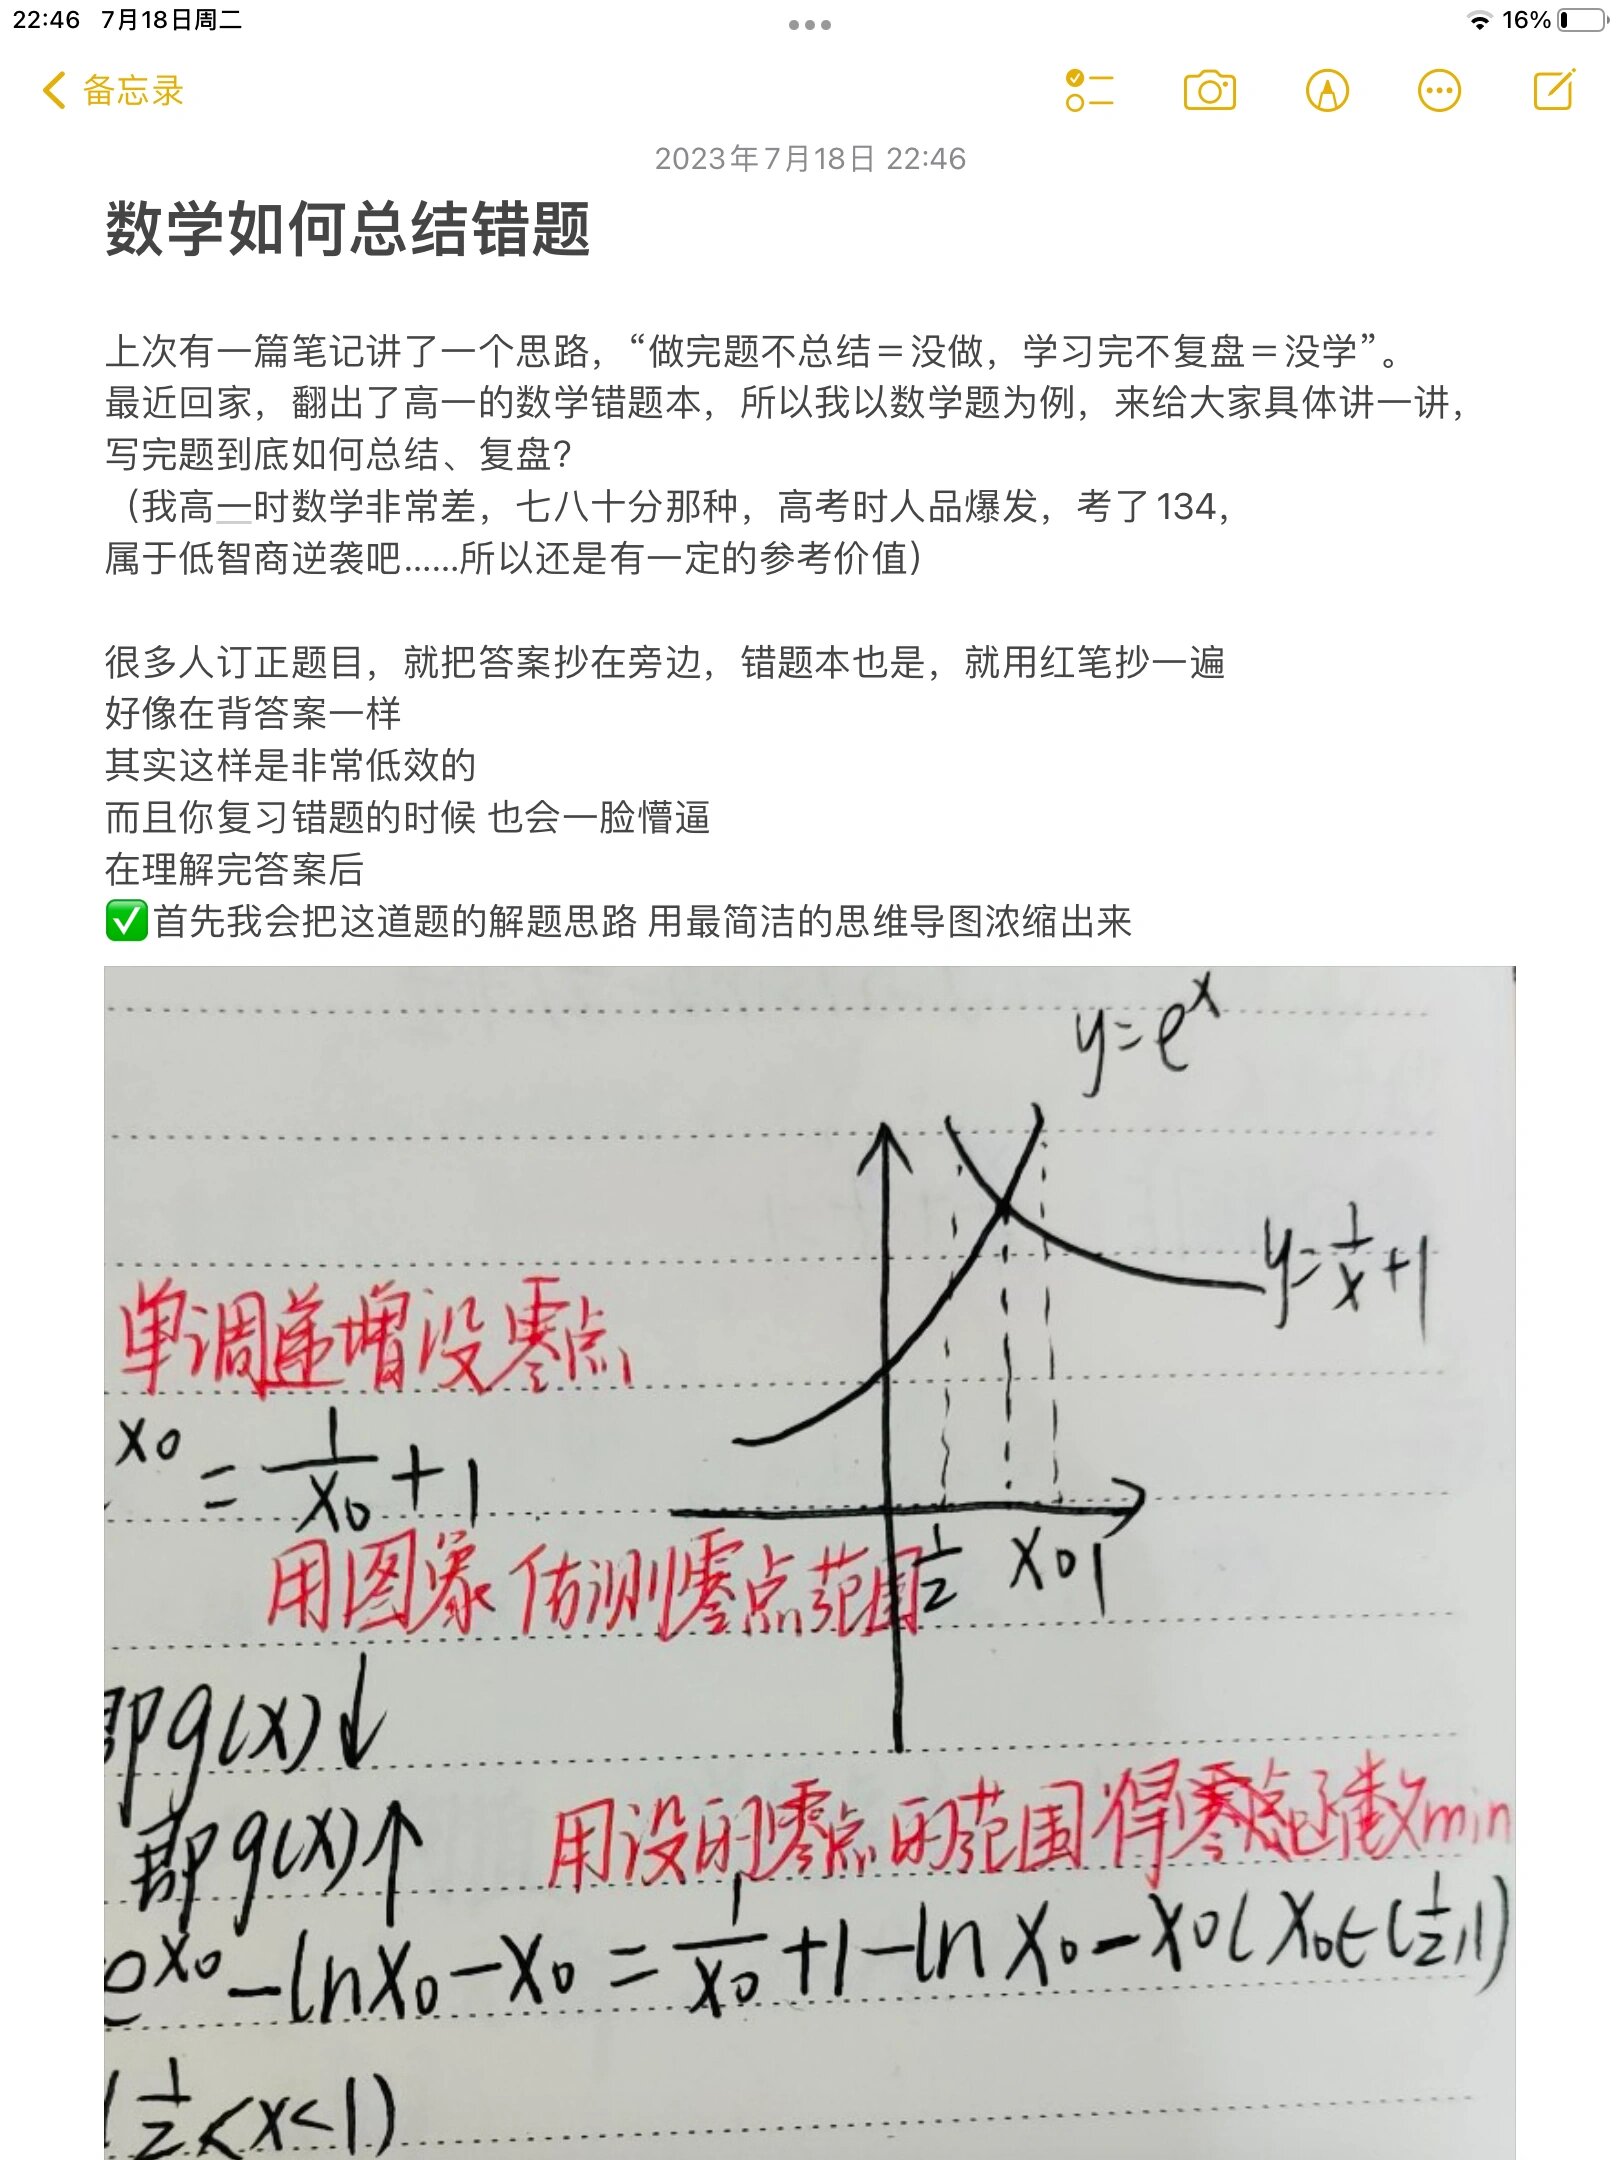 22:46 7月18日周二
16%
备忘录
2023年7月18日 22:46
数学如何总结错题
上次有一篇笔记讲了一个思路，“做完题不总结＝没做，学习完不复盘＝没学”。
最近回家，翻出了高一的数学错题本，所以我以数学题为例，来给大家具体讲一讲，
写完题到底如何总结、复盘？
（我高一时数学非常差，七八十分那种，高考时人品爆发，考了134，
属于低智商逆袭吧……所以还是有一定的参考价值）
很多人订正题目，就把答案抄在旁边，错题本也是，就用红笔抄一遍
好像在背答案一样
其实这样是非常低效的
而且你复习错题的时候 也会一脸懵逼
在理解完答案后
✅首先我会把这道题的解题思路 用最简洁的思维导图浓缩出来
y=eˣ
y=1/x+1
单调递增没零点
x₀ = 1/x₀+1
用图象估测零点范围
1/2 x₀ 1
即g(x)↓
即g(x)↑
用设的零点的范围得零点函数min
e^x₀-lnx₀-x₀ = 1/x₀+1-lnx₀-x₀(x₀∈(1/2,1)
(1/2<x<1)